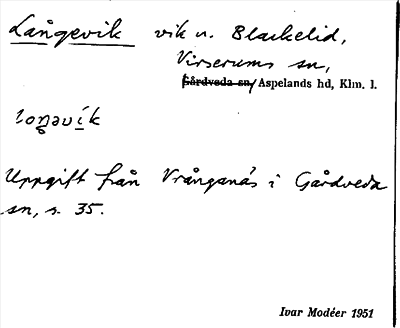 Långevik vik u. Blackelid,
Virserums sn,
Gårdveda sn, Aspelands hd, Klm. l.
loŋəvík
Uppgift från Vrånganäs i Gårdveda
sn, s. 35.
Ivar Modéer 1951